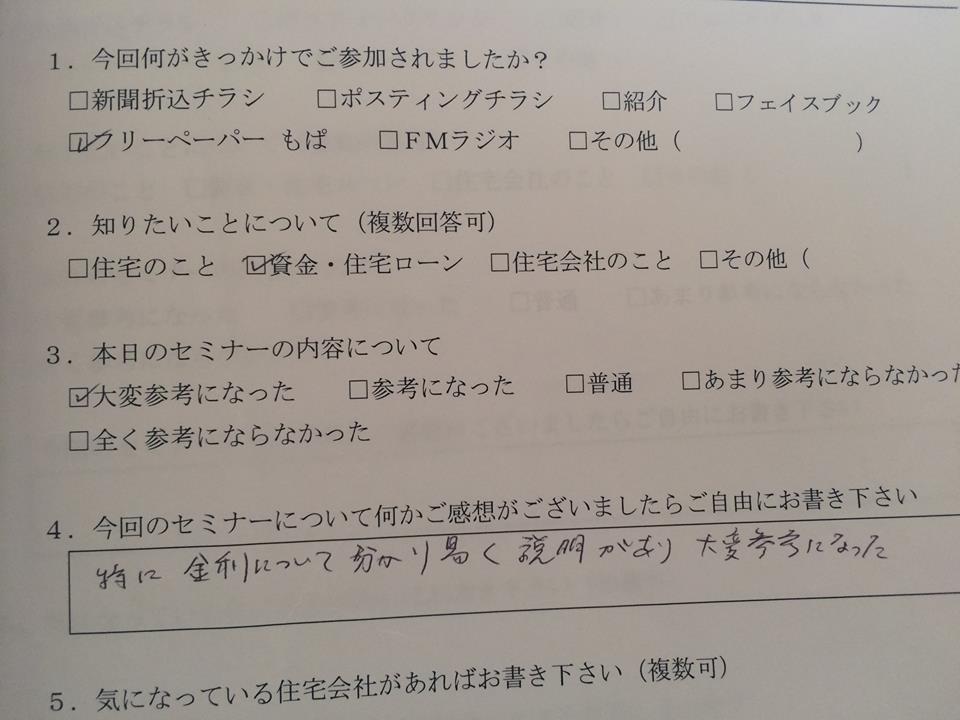 1．今回何がきっかけでご参加されましたか？
□新聞折込チラシ □ポスティングチラシ □紹介 □フェイスブック
☑フリーペーパー もぱ □ＦＭラジオ □その他（ ）
2．知りたいことについて（複数回答可）
□住宅のこと ☑資金・住宅ローン □住宅会社のこと □その他（
3．本日のセミナーの内容について
☑大変参考になった □参考になった □普通 □あまり参考にならなかった
□全く参考にならなかった
4．今回のセミナーについて何かご感想がございましたらご自由にお書き下さい
特に 金利について 分かり易く 説明があり 大変参考になった
5．気になっている住宅会社があればお書き下さい（複数可）